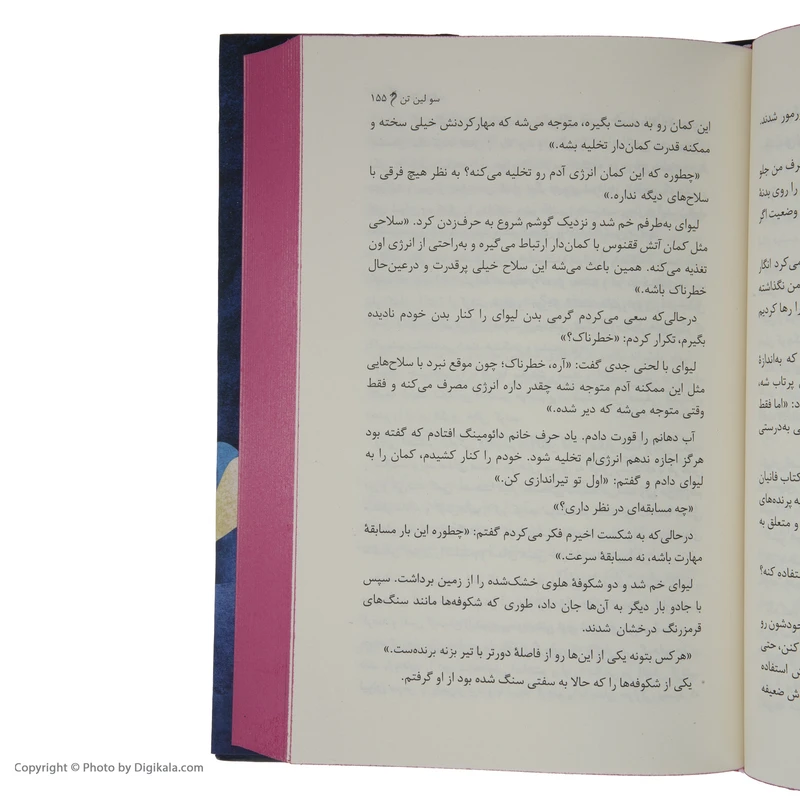 سو لین تن ۱۵۵
این کمان رو به دست بگیره، متوجه می‌شه که مهارکردنش خیلی سخته و
ممکنه قدرت کمان‌دار تخلیه بشه.»
«چطوره که این کمان انرژی آدم رو تخلیه می‌کنه؟ به نظر هیچ فرقی با
سلاح‌های دیگه نداره.»
لیوای به‌طرفم خم شد و نزدیک گوشم شروع به حرف‌زدن کرد. «سلاحی
مثل کمان آتش ققنوس با کمان‌دار ارتباط می‌گیره و به‌راحتی از انرژی اون
تغذیه می‌کنه. همین باعث می‌شه این سلاح خیلی پرقدرت و درعین‌حال
خطرناک باشه.»
درحالی‌که سعی می‌کردم گرمی بدن لیوای را کنار بدن خودم نادیده
بگیرم، تکرار کردم: «خطرناک؟»
لیوای با لحنی جدی گفت: «آره، خطرناک؛ چون موقع نبرد با سلاح‌هایی
مثل این ممکنه آدم متوجه نشه چقدر داره انرژی مصرف می‌کنه و فقط
وقتی متوجه می‌شه که دیر شده.»
آب دهانم را قورت دادم. یاد حرف خانم دائومینگ افتادم که گفته بود
هرگز اجازه ندهم انرژی‌ام تخلیه شود. خودم را کنار کشیدم، کمان را به
لیوای دادم و گفتم: «اول تو تیراندازی کن.»
«چه مسابقه‌ای در نظر داری؟»
درحالی‌که به شکست اخیرم فکر می‌کردم گفتم: «چطوره این بار مسابقهٔ
مهارت باشه، نه مسابقهٔ سرعت.»
لیوای خم شد و دو شکوفهٔ هلوی خشک‌شده را از زمین برداشت. سپس
با جادو بار دیگر به آن‌ها جان داد، طوری که شکوفه‌ها مانند سنگ‌های
قرمزرنگ درخشان شدند.
«هرکس بتونه یکی از این‌ها رو از فاصلهٔ دورتر با تیر بزنه برنده‌ست.»
یکی از شکوفه‌ها را که حالا به سفتی سنگ شده بود از او گرفتم.
رمور شدند.
رف من جلو
را روی بدنهٔ
وضعیت اگر
می‌کرد انگار
من نگذاشته
را رها کردیم
که به‌اندازهٔ
پرتاب شه،
د: «اما فقط
ی به‌درستی
کتاب فانیان
ه پرنده‌های
و متعلق به
ستفاده کنه؟
خودشون رو
کنن، حتی
ش استفاده
ش ضعیفه
Copyright © Photo by Digikala.com